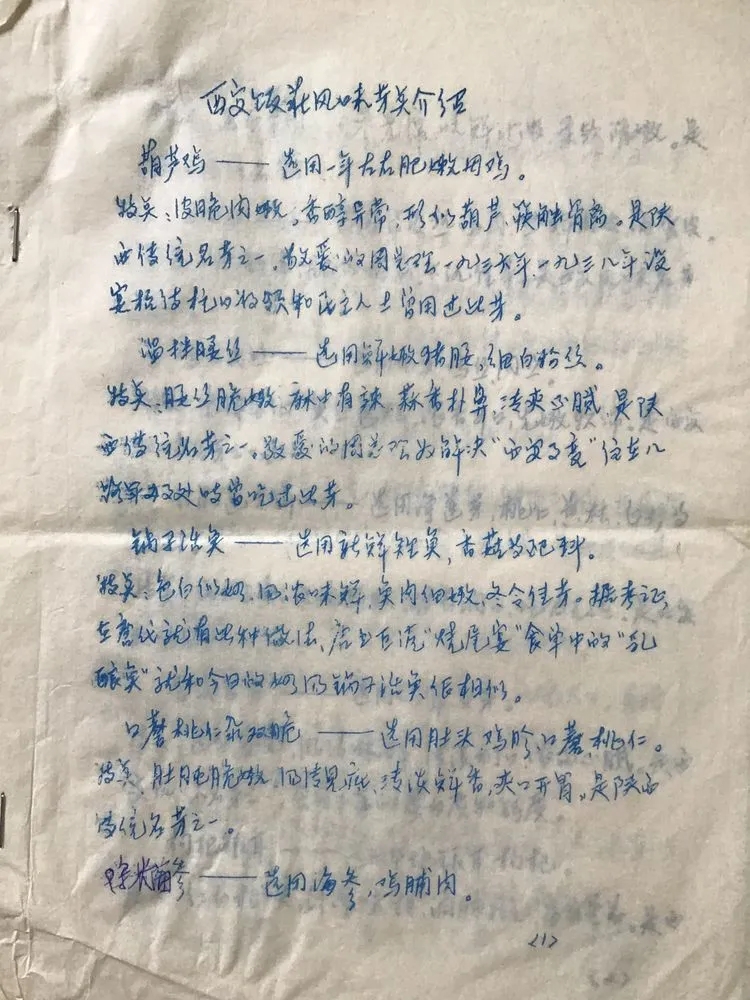 西安饭庄风味芳美介绍
葫芦鸡——选用一年左右肥嫩母鸡。
特美:皮脆肉嫩,香醇异常,形似葫芦,筷触骨离。是陕
西传统名芳之一,敬爱的周总理一九三六年、一九三八年设
宴招待杜的将领和民主人士曾用过此芳。
温拌腰丝——选用鲜嫩猪腰,细白粉丝。
特美:腰丝脆嫩,麻中有辣,蒜香扑鼻,清爽不腻,是陕
西传统名芳之一。敬爱的周总理为解决“西安事变”住在八
路军办事处时曾吃过此芳。
锅子活鱼——选用新鲜鲤鱼,香菇为配料。
特美:色白似奶,汤浓味鲜,鱼肉细嫩,冬令佳芳。据考证,
在唐代就有此种做法,唐 巨流“烧尾宴”食单中的“乳
酿鱼”就和今日的奶汤锅子活鱼作相似。
口蘑桃仁汆双脆——选用肚头,鸡胗,口蘑,桃仁。
特美:肚胗脆嫩,汤清见底,清淡鲜香,爽口开胃。是陕西
传统名芳之一。
海参——选用海参,鸡脯肉。
<1>